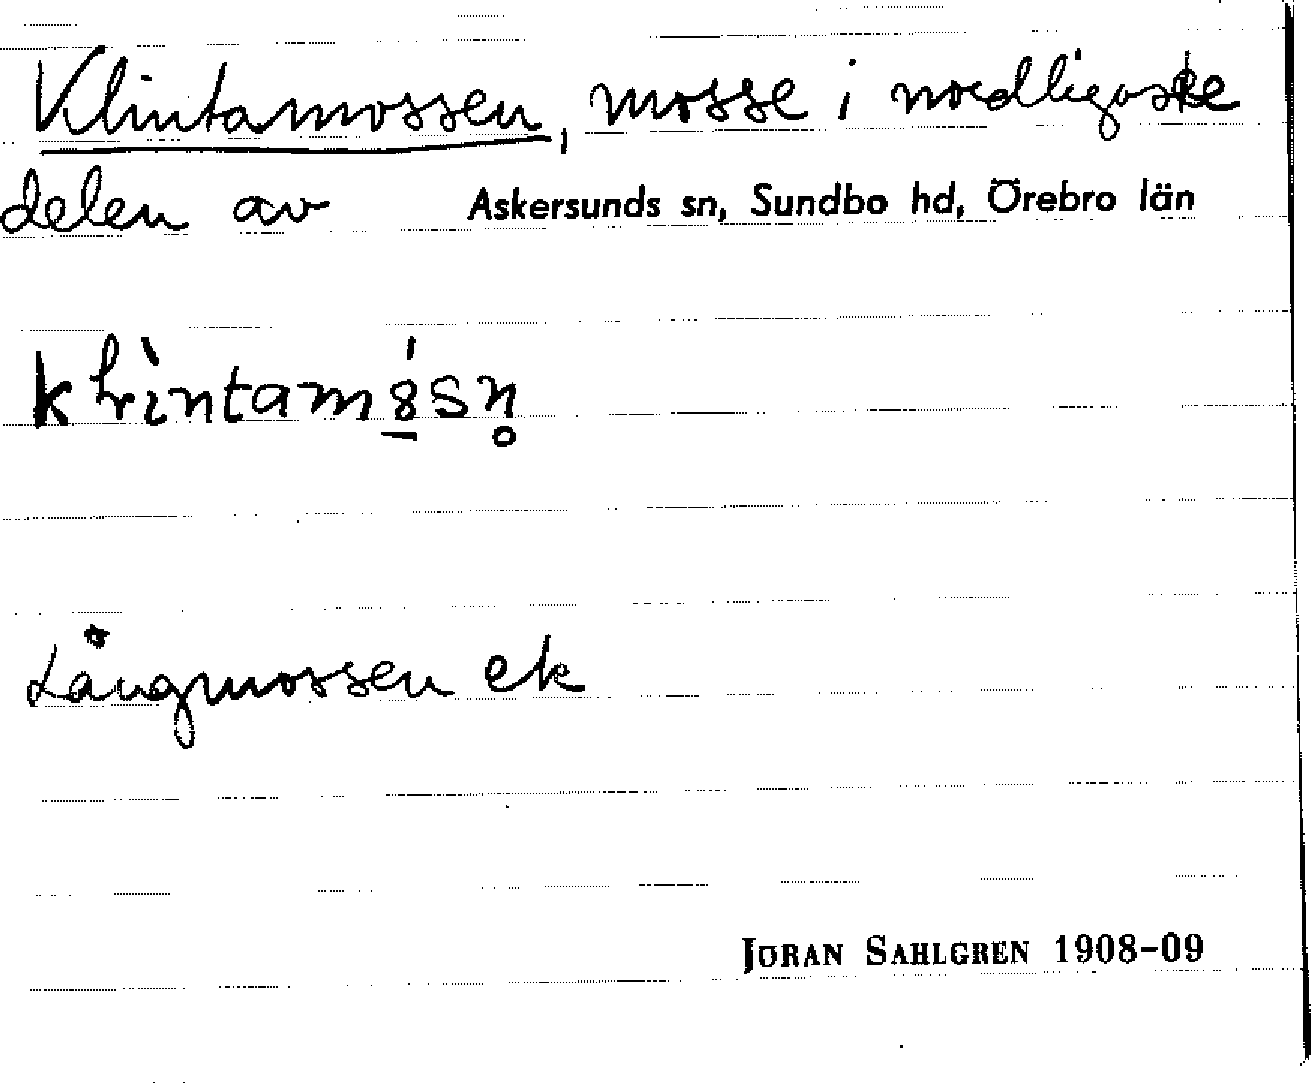 Klintamossen, mosse i nordligaste
delen av Askersunds sn, Sundbo hd, Örebro län
Långmossen ek
JÖRAN SAHLGREN 1908-09